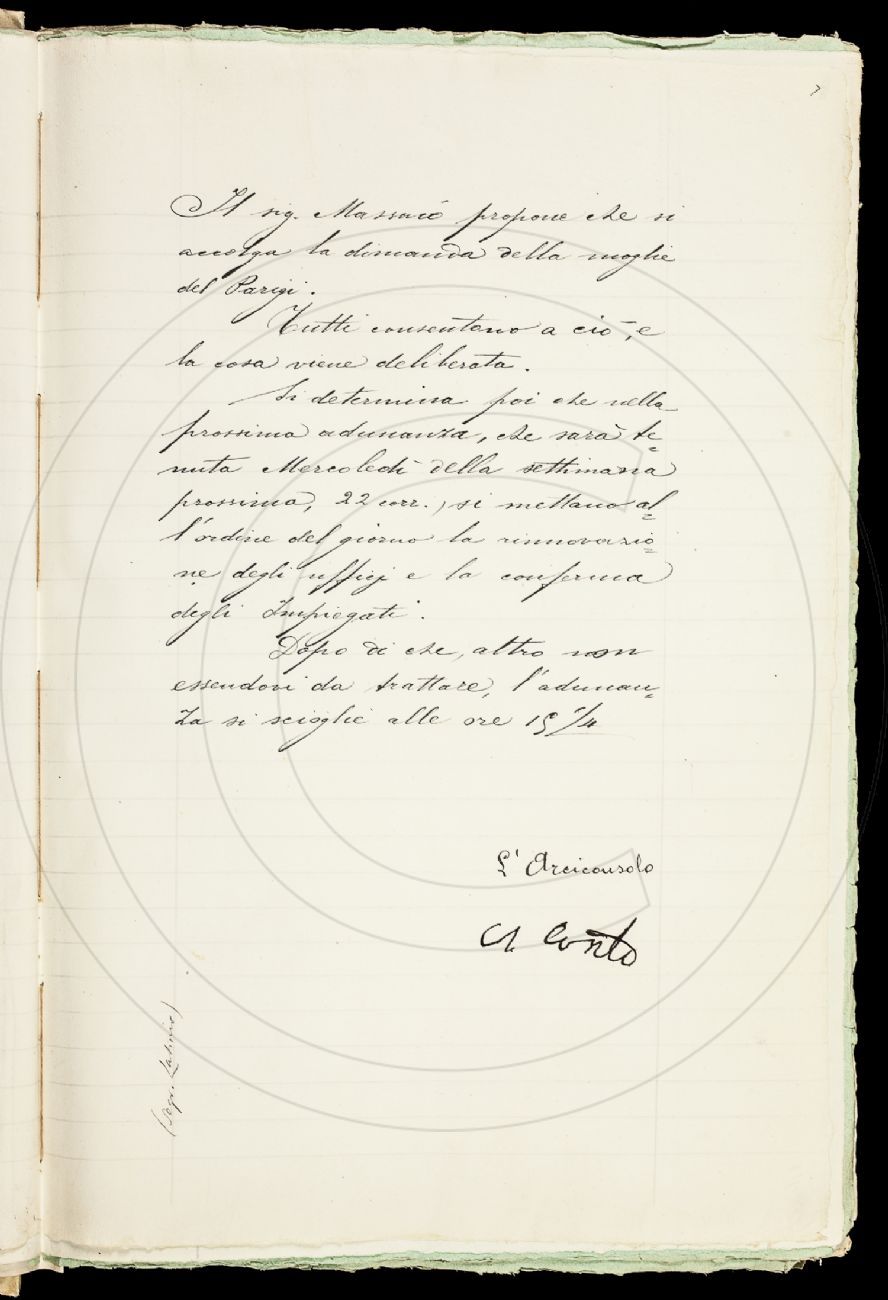 7
Il sig. Massaio propone che si
accolga la dimanda della moglie
del Parigi.
Tutti consentono a ciò, e
la cosa viene deliberata.
Si determina poi che nella
prossima adunanza, che sarà te=
nuta Mercoledì della settimana
prossima, 22 corr., si mettano al=
l'ordine del giorno la rinnovazio=
ne degli uffizj e la conferma
degli Impiegati.
Dopo di che, altro non
essendovi da trattare, l'adunan=
za si scioglie alle ore 15 1/4
L'Arciconsolo
A Conti
(Segr.